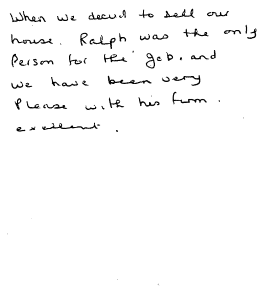 When we decid to sell our
house. Ralph was the only
Person for the gob. and
we have been very
Please with his firm.
excellent.